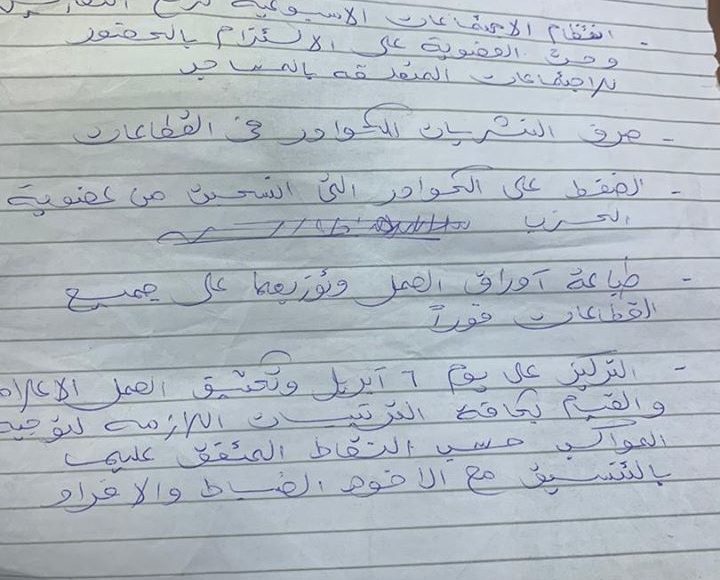 - انتظام الاجتماعات الاسبوعية
وحث العضوية على الالتزام بالحضور
للاجتماعات المتفرقه بالمساجد
- صرف النثريات للكوادر في القطاعات
- الضغط على الكوادر التي انسحبت من عضوية
الحزب
- طباعة أوراق العمل وتوزيعها على جميع
القطاعات فوراً
- التركيز على يوم ٦ أبريل وتحقيق العمل
والقيام بكافة الترتيبات اللازمه لتوجيه
المواكب حسب النقاط المتفق عليها
بالتنسيق مع الاخوه الضباط والافراد